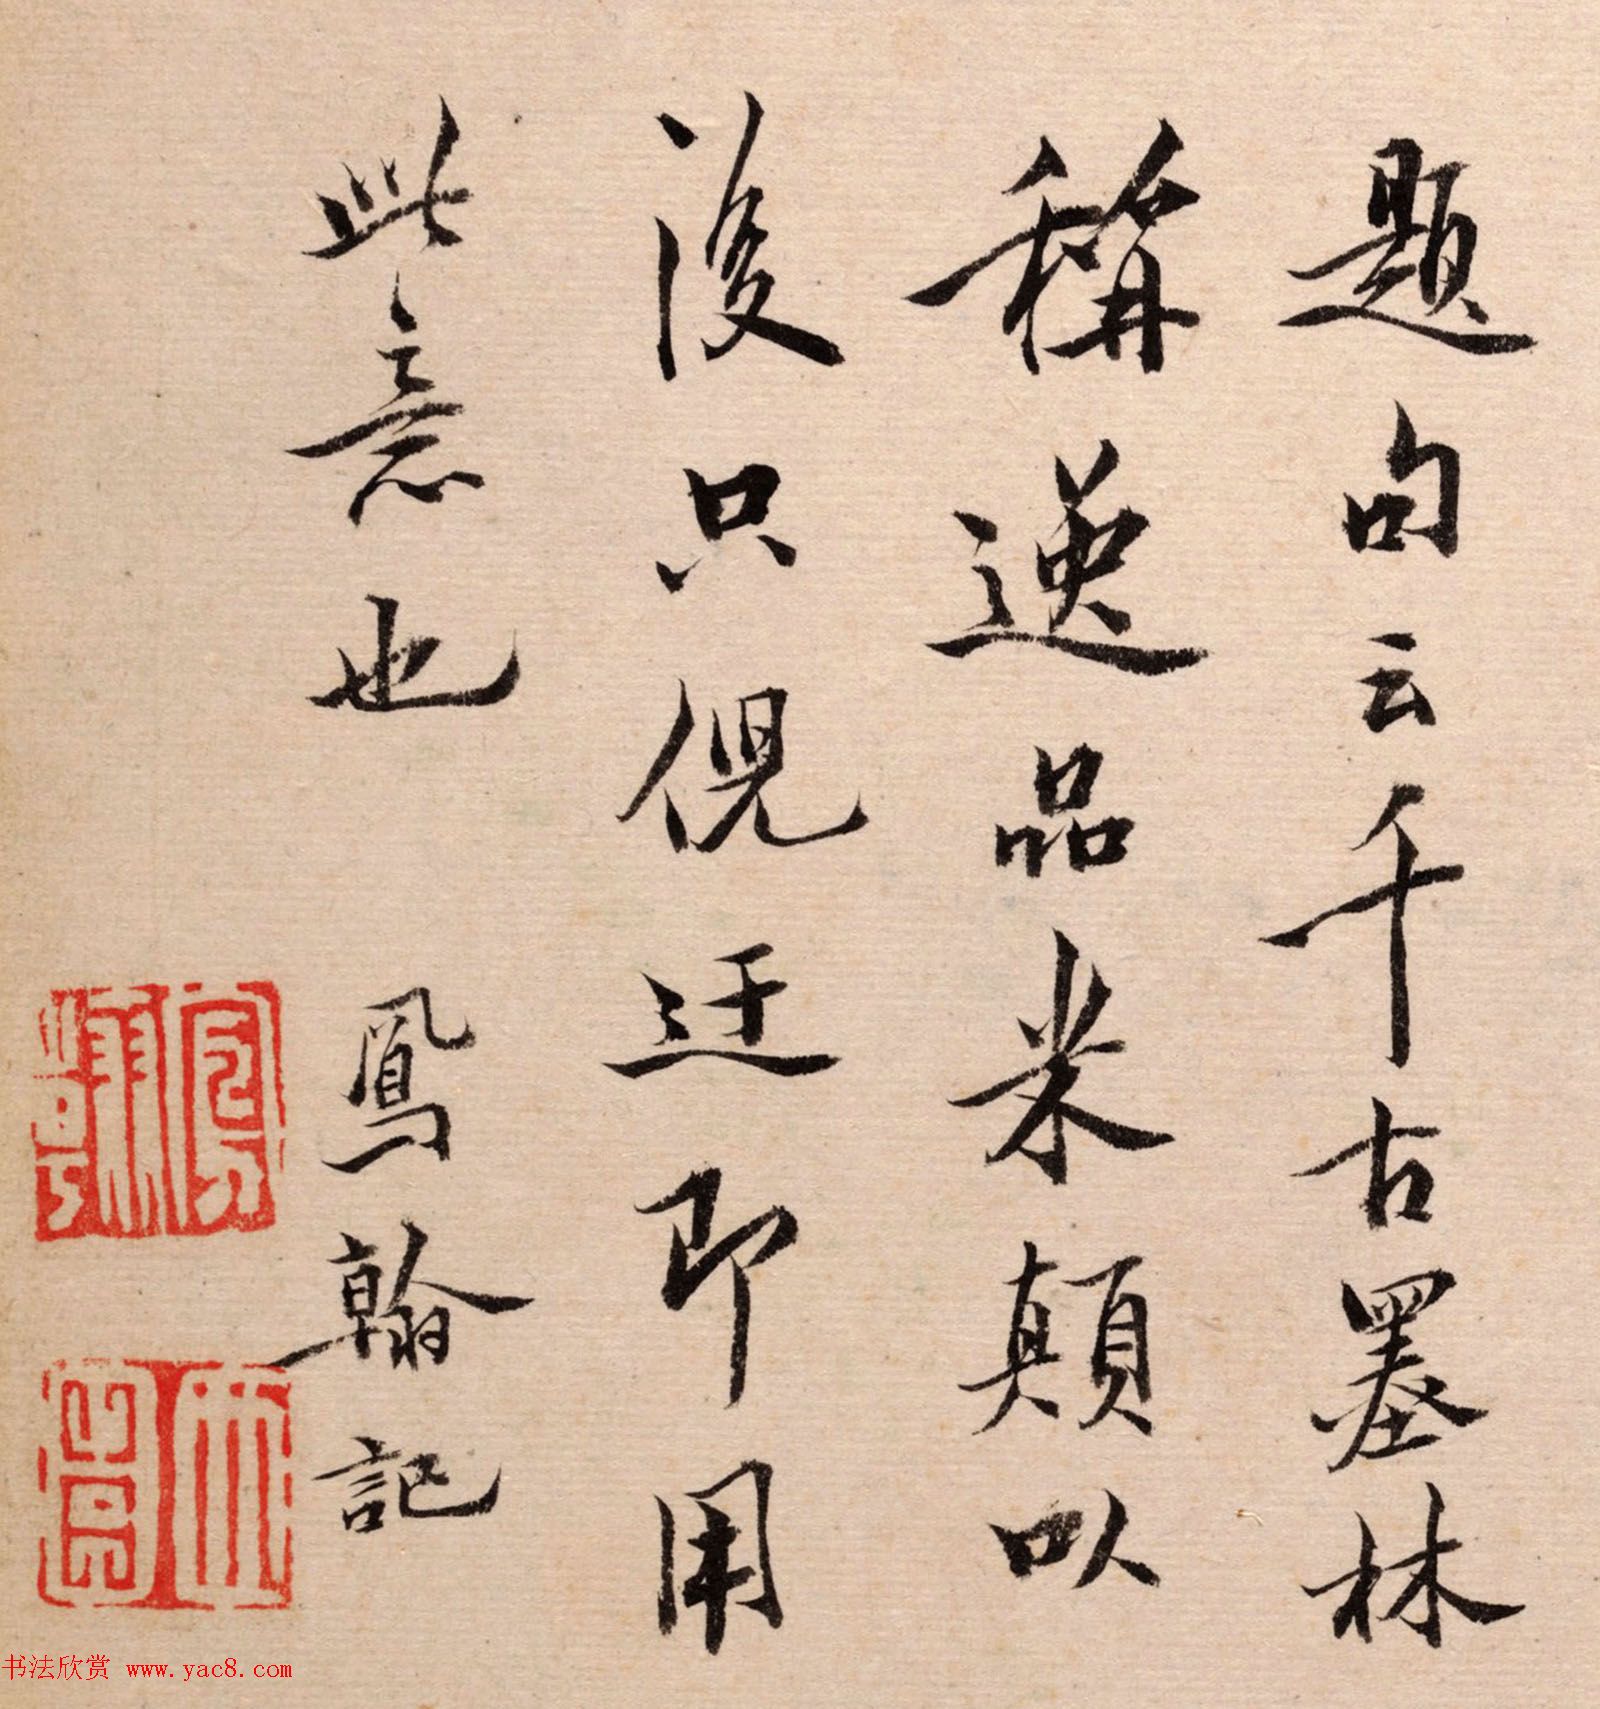 題句云千古墨林
稱逸品米顛以
後只倪迂即用
此意也
鳳翰記
书法欣赏 www.yac8.com